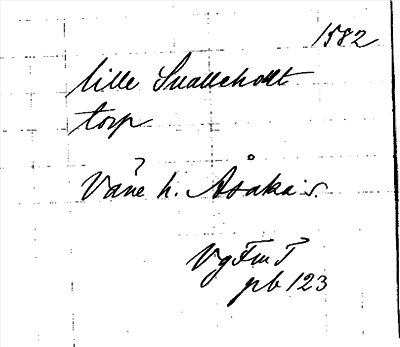 1582
lille Sualteholt
torp
Väne h. Åsaka s.
VgFmT
pb 123